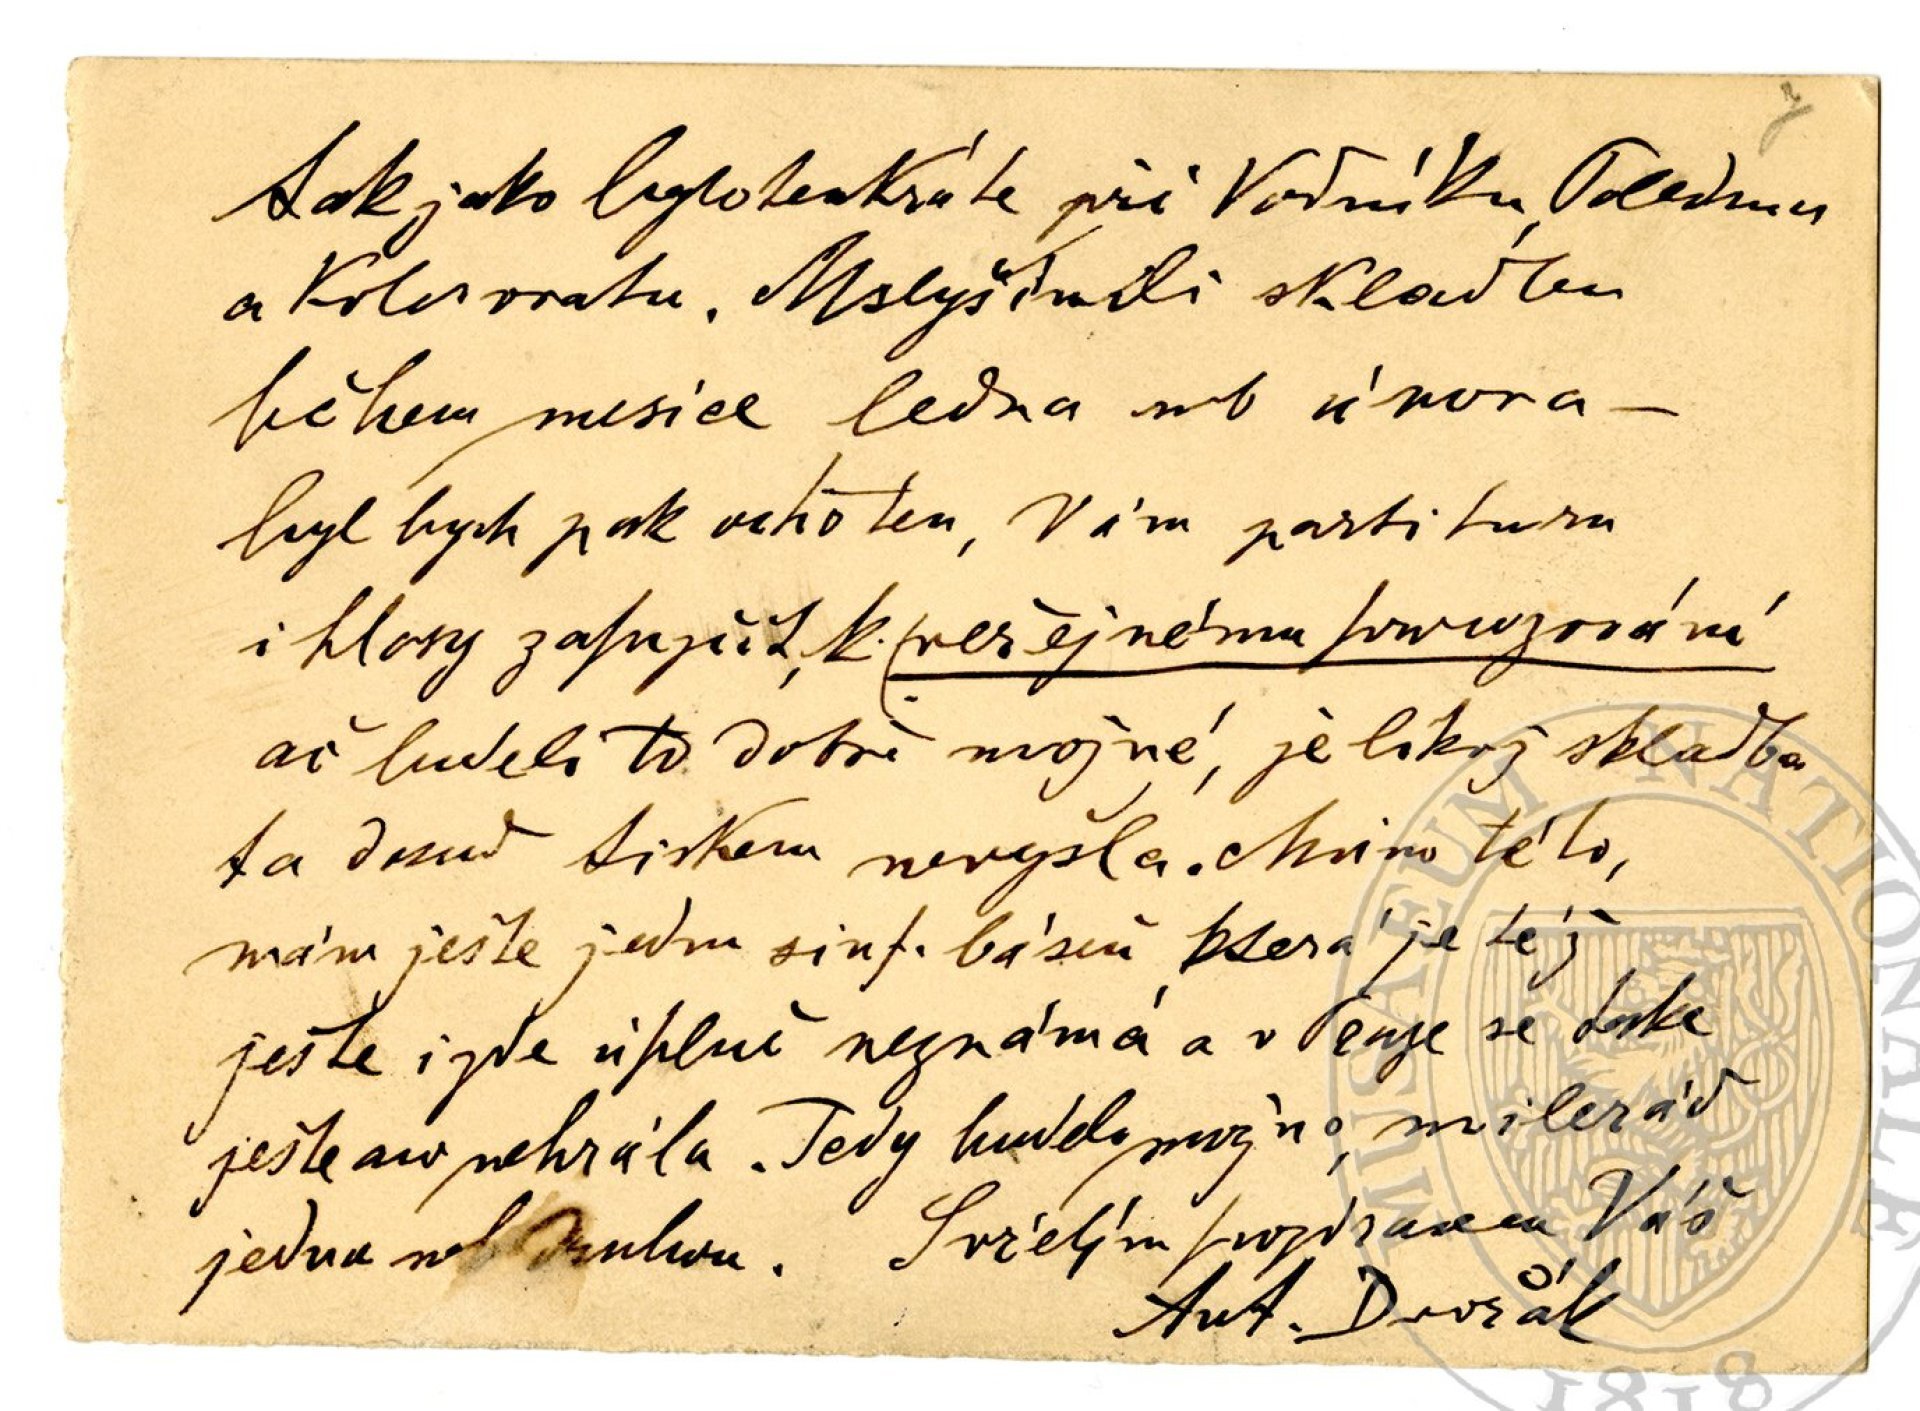 tak jako bylo tenkráte při Vodníku, Polednu
a Kolovratu. Uslyšímli skladbu
během mesice ledna neb února –
byl bych pak ochoten, Vám partituru
i hlasy zapujčit, k veřejnému provozování
ač budeli to dobře možné, jelikož skladba
ta dosud tiskem nevyšla. Mimo této,
mám ješte jednu sinf. báseň která je též
ješte zde úplně neznámá a v Praze se take
ješte ano nehrála. Tedy budeli možno, milerád
jednu neb druhou. Srdečným pozdravem Váš
Ant. Dvořák
MUSAEUM NATIONALE
1818